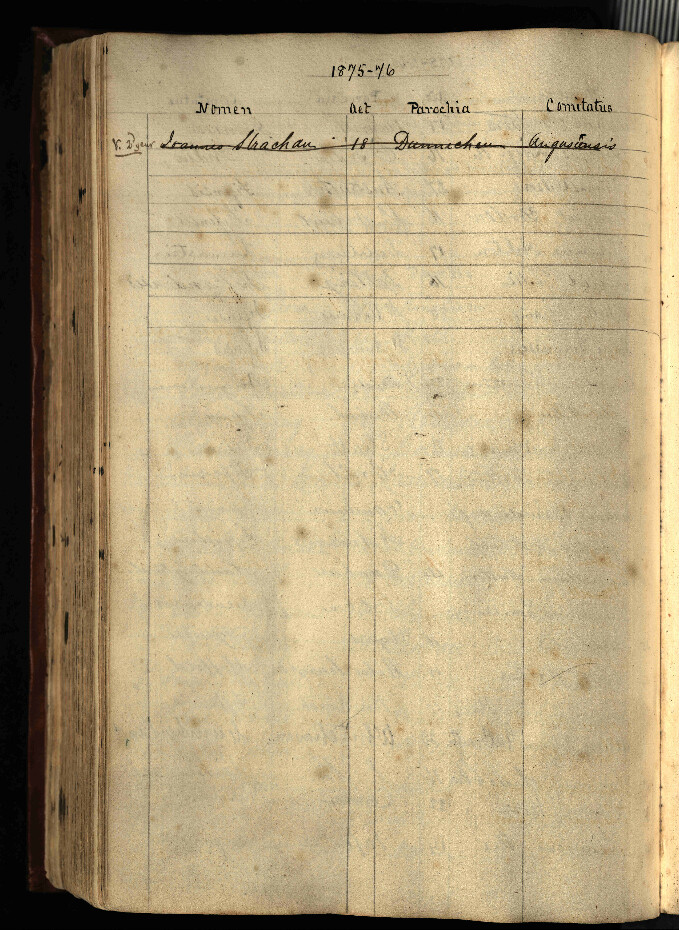 1875-76
Nomen Aet Parochia Comitatus
V. 2d year Ioannes Strachan 18 Dunnichen Angusiensis